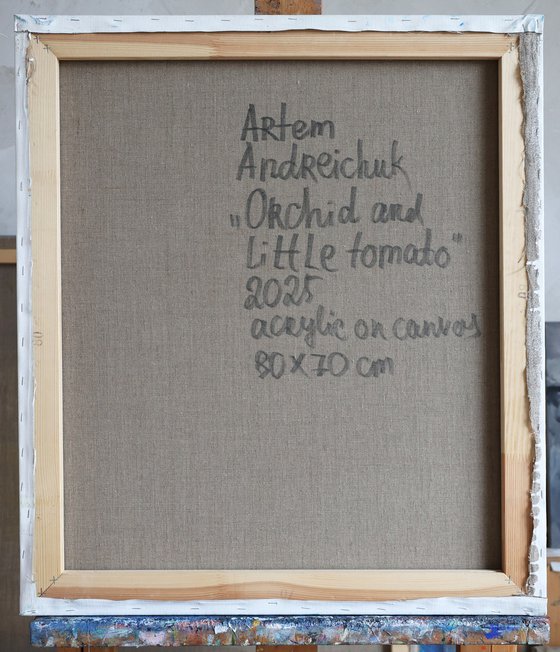 Artem
Andreichuk
„Orchid and
little tomato"
2025
acrylic on canvas
80x70 cm
80